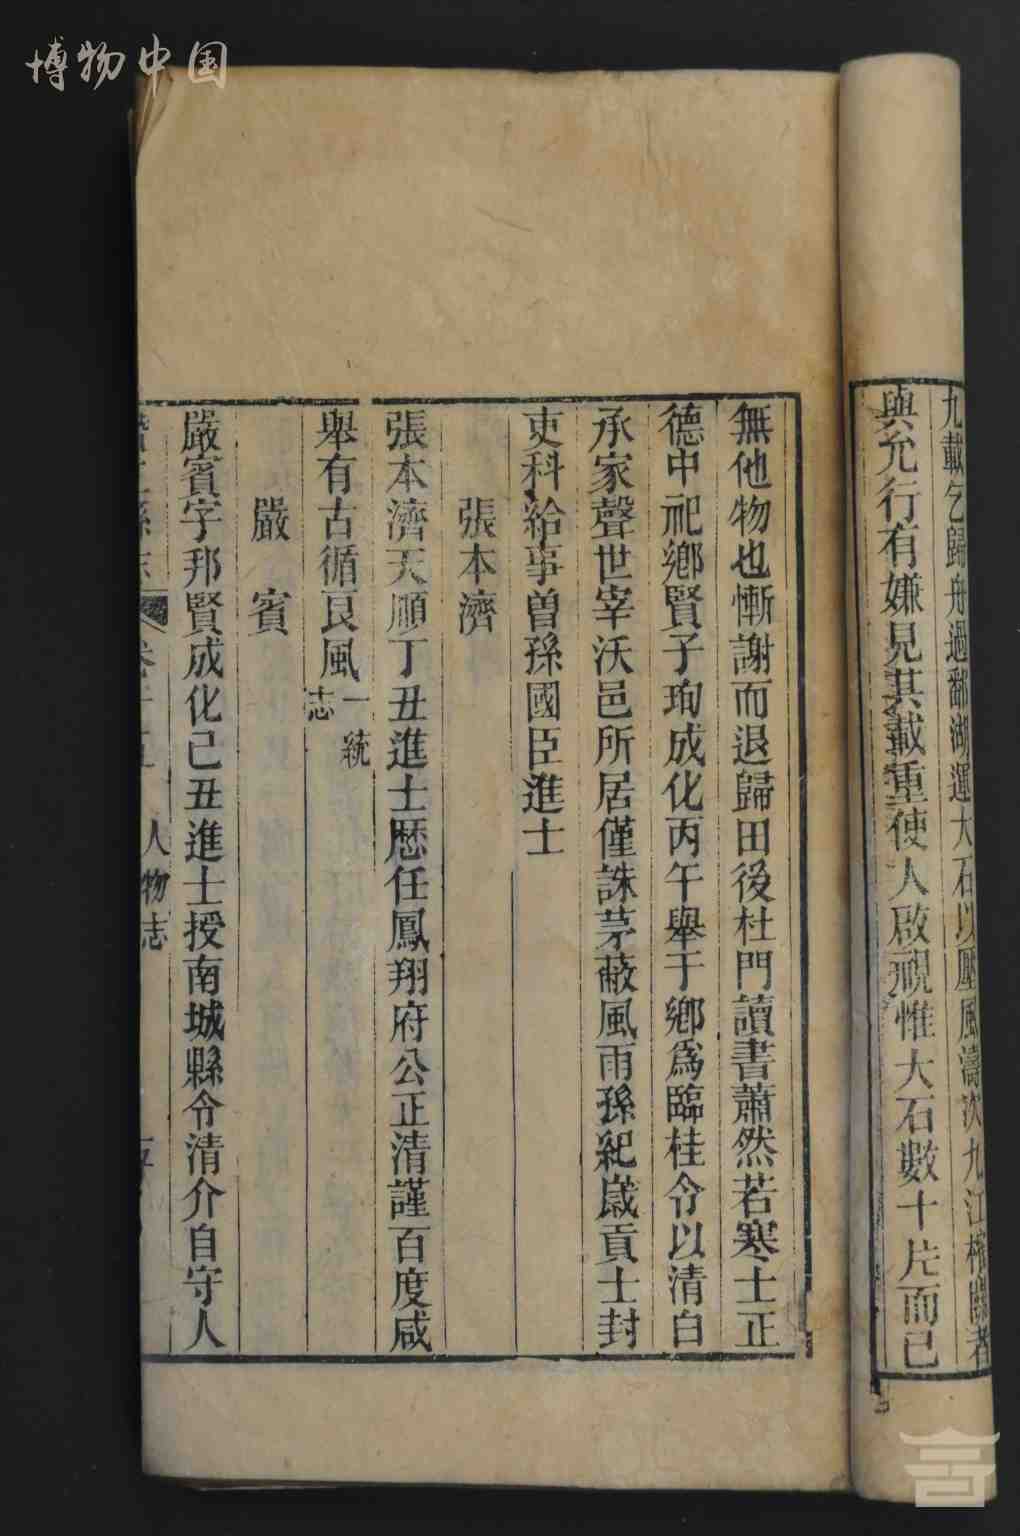 博物中国
九載乞歸舟過鄱湖運大石以壓風濤次九江榷關者
與允行有嫌見其載重使人啟視惟大石數十片而已
無他物也慚謝而退歸田後杜門讀書蕭然若寒士正
德中祀鄉賢子珣成化丙午舉于鄉為臨桂令以清白
承家聲世宰沃邑所居僅誅茅蔽風雨孫紀歲貢士封
吏科給事曾孫國臣進士
張本濟
張本濟天順丁丑進士歷任鳳翔府公正清謹百度咸
舉有古循良風一統志
嚴賓
嚴賓字邦賢成化己丑進士授南城縣令清介自守人
縣志 卷 人物志